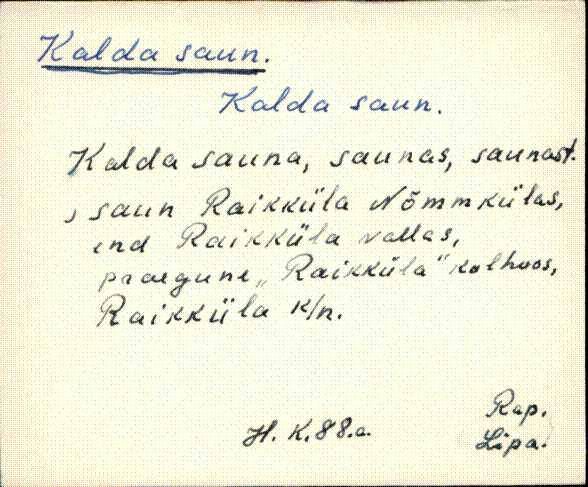 Kalda saun.
Kalda saun.
Kalda sauna, saunas, saunast.
, saun Raikküla Nõmmkülas,
end Raikküla vallas,
praegune „Raikküla" kolhoos,
Raikküla k/n.
Rap.
H. K. 88.a.
Lipa.